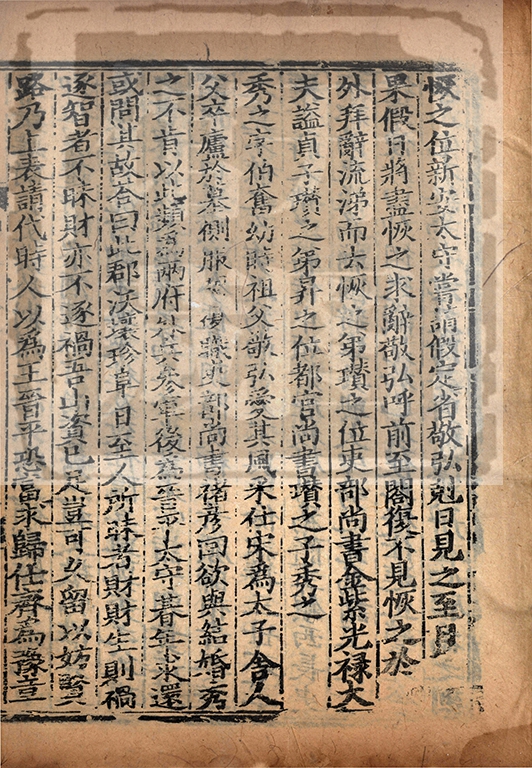 恢之位新安太守嘗請假定省敬弘剋日見之至日
果假日將盡恢之求辭敬弘呼前至閤復不見恢之於
外拜辭流涕而去恢之弟瓚之位吏部尚書金紫光祿大
夫謚貞子瓚之弟昇之位都官尚書瓚之子秀之
秀之字伯奮幼時祖父敬弘愛其風采仕宋為太子舍人
父卒廬於墓側服復職吏部尚書褚彥回欲與結婚秀
之不肯以此頻為兩府外兵參軍後為晉平太守朞年求還
或問其故荅曰此郡沃壤珍阜日至人所昧者財財生則禍
逐智者不昧財亦不逐禍吾山資已足豈可久留以妨賢
路乃上表請代時人以為王晉平恐富求歸仕齊為豫章